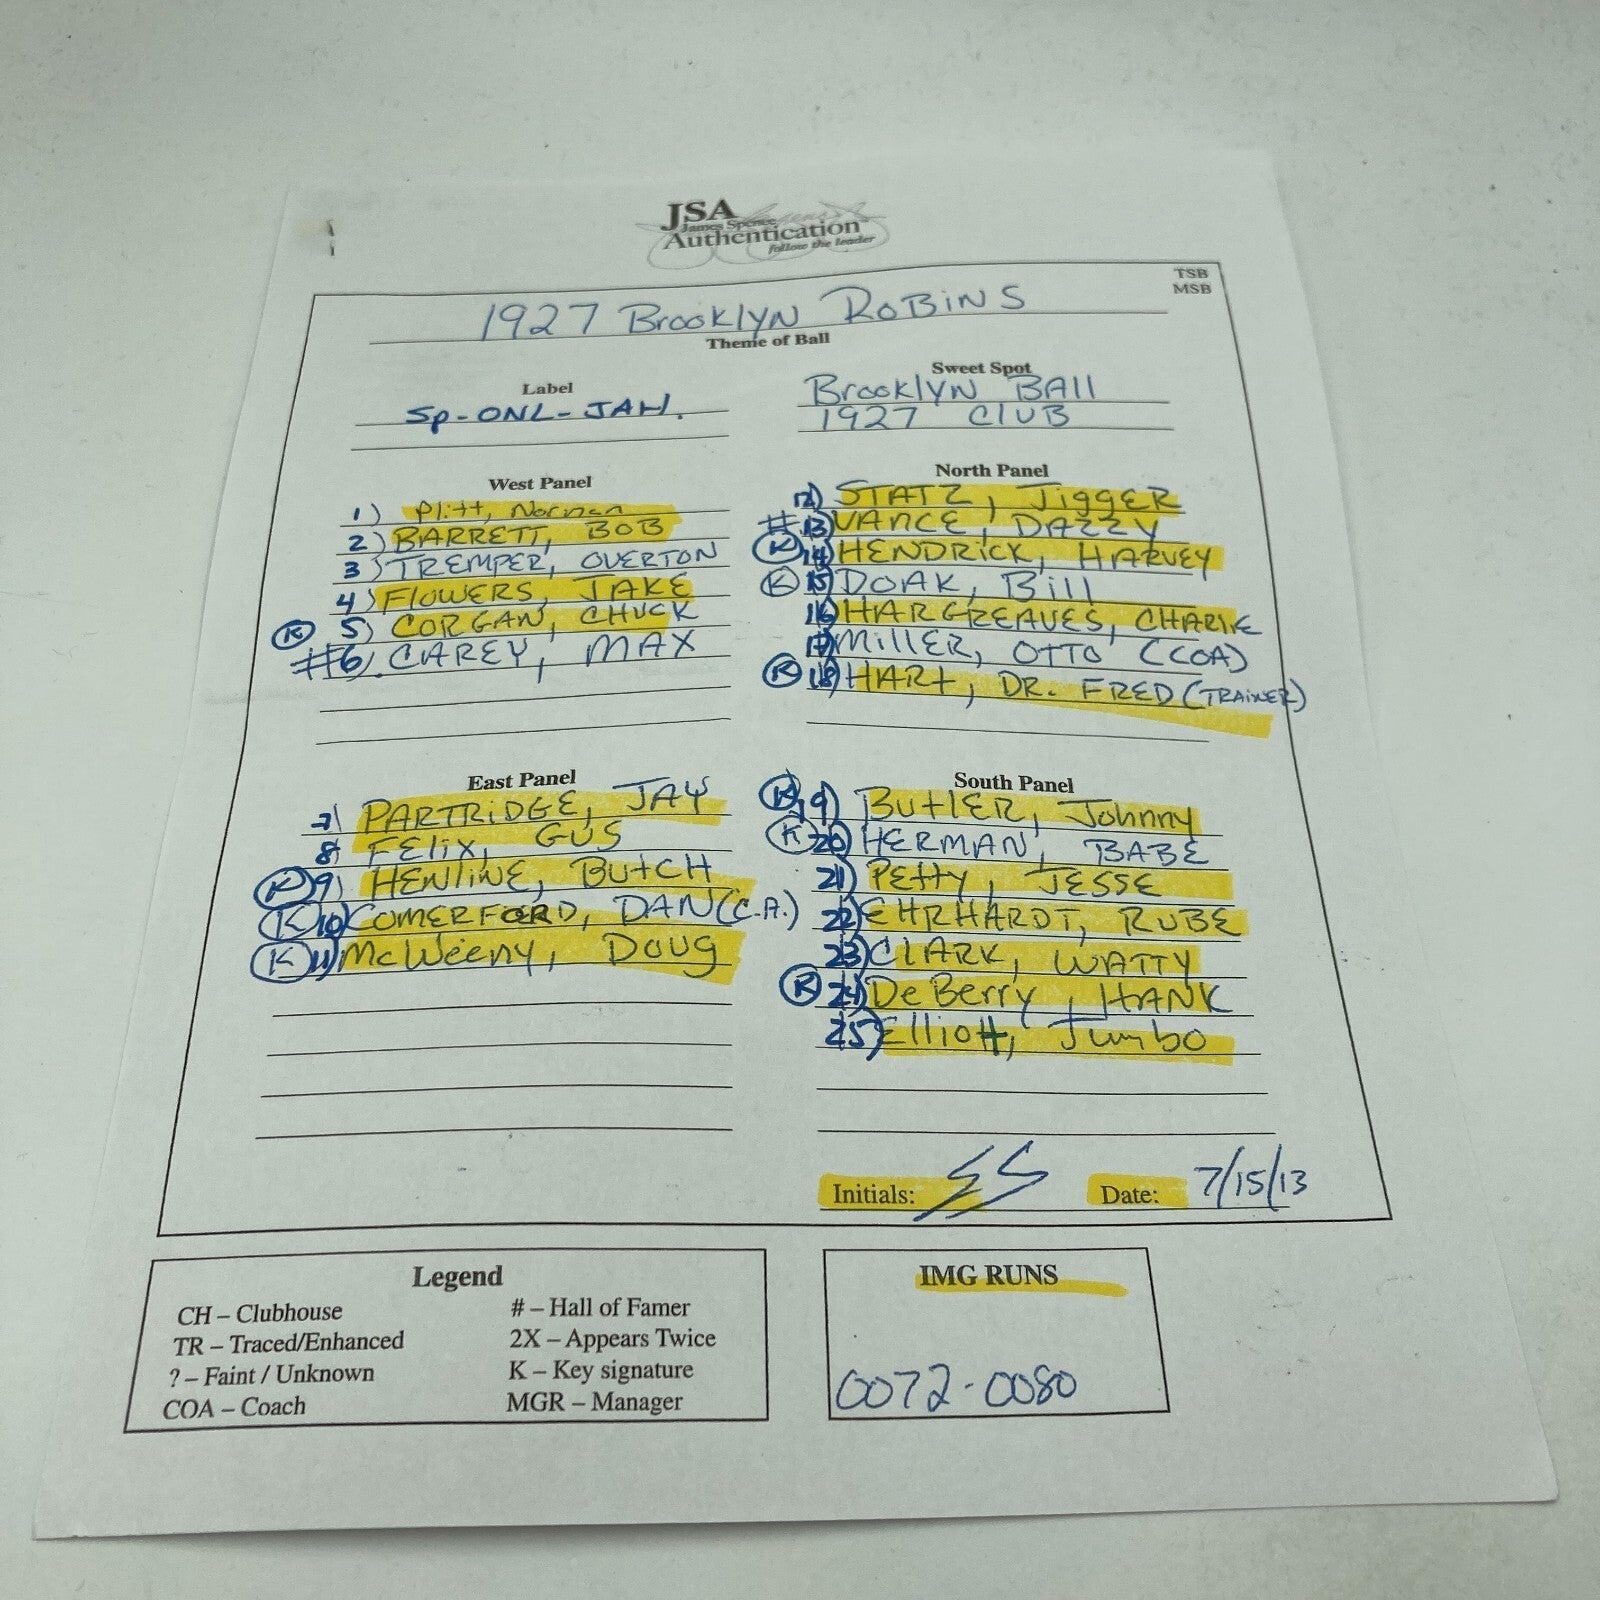 JSA
James Spence
Authentication
follow the leader
TSB
MSB
1927 Brooklyn Robins
Theme of Ball
Label
Sp-ONL-JAH.
Sweet Spot
Brooklyn Ball
1927 Club
West Panel
1) Plitt, Norman
2) BARRETT, BOB
3) TREMPER, OVERTON
4) FLOWERS, JAKE
K 5) CORGAN, CHUCK
#6) CAREY, MAX
North Panel
12) STATZ, JIGGER
# 13) VANCE, DAZZY
K 14) HENDRICK, HARVEY
K 15) DOAK, Bill
16) HARGREAVES, CHARLIE
17) MILLER, OTTO (COA)
K 18) HART, DR. FRED (TRAINER)
East Panel
7) PARTRIDGE, JAY
8) FELIX, GUS
K 9) HENLINE, BUTCH
K 10) COMERFORD, DAN (C.A.)
K 11) McWeeny, DOUG
South Panel
K 19) BUTLER, Johnny
K 20) HERMAN, BABE
21) PETTY, JESSE
22) EHRHARDT, RUBE
23) CLARK, WATTY
K 24) DeBerry, HANK
25) Elliott, Jumbo
Initials: SS Date: 7/15/13
Legend
CH – Clubhouse # – Hall of Famer
TR – Traced/Enhanced 2X – Appears Twice
? – Faint / Unknown K – Key signature
COA – Coach MGR – Manager
IMG RUNS
0072-0080